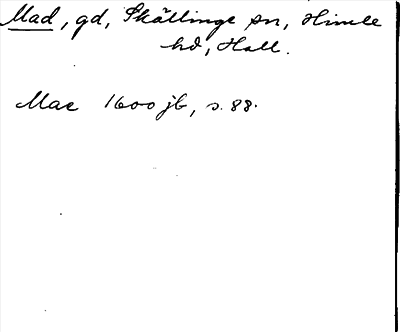 Mad, gd, Skällinge sn, Himle
hd, Hall.
Mae 1600 jb, s. 88.